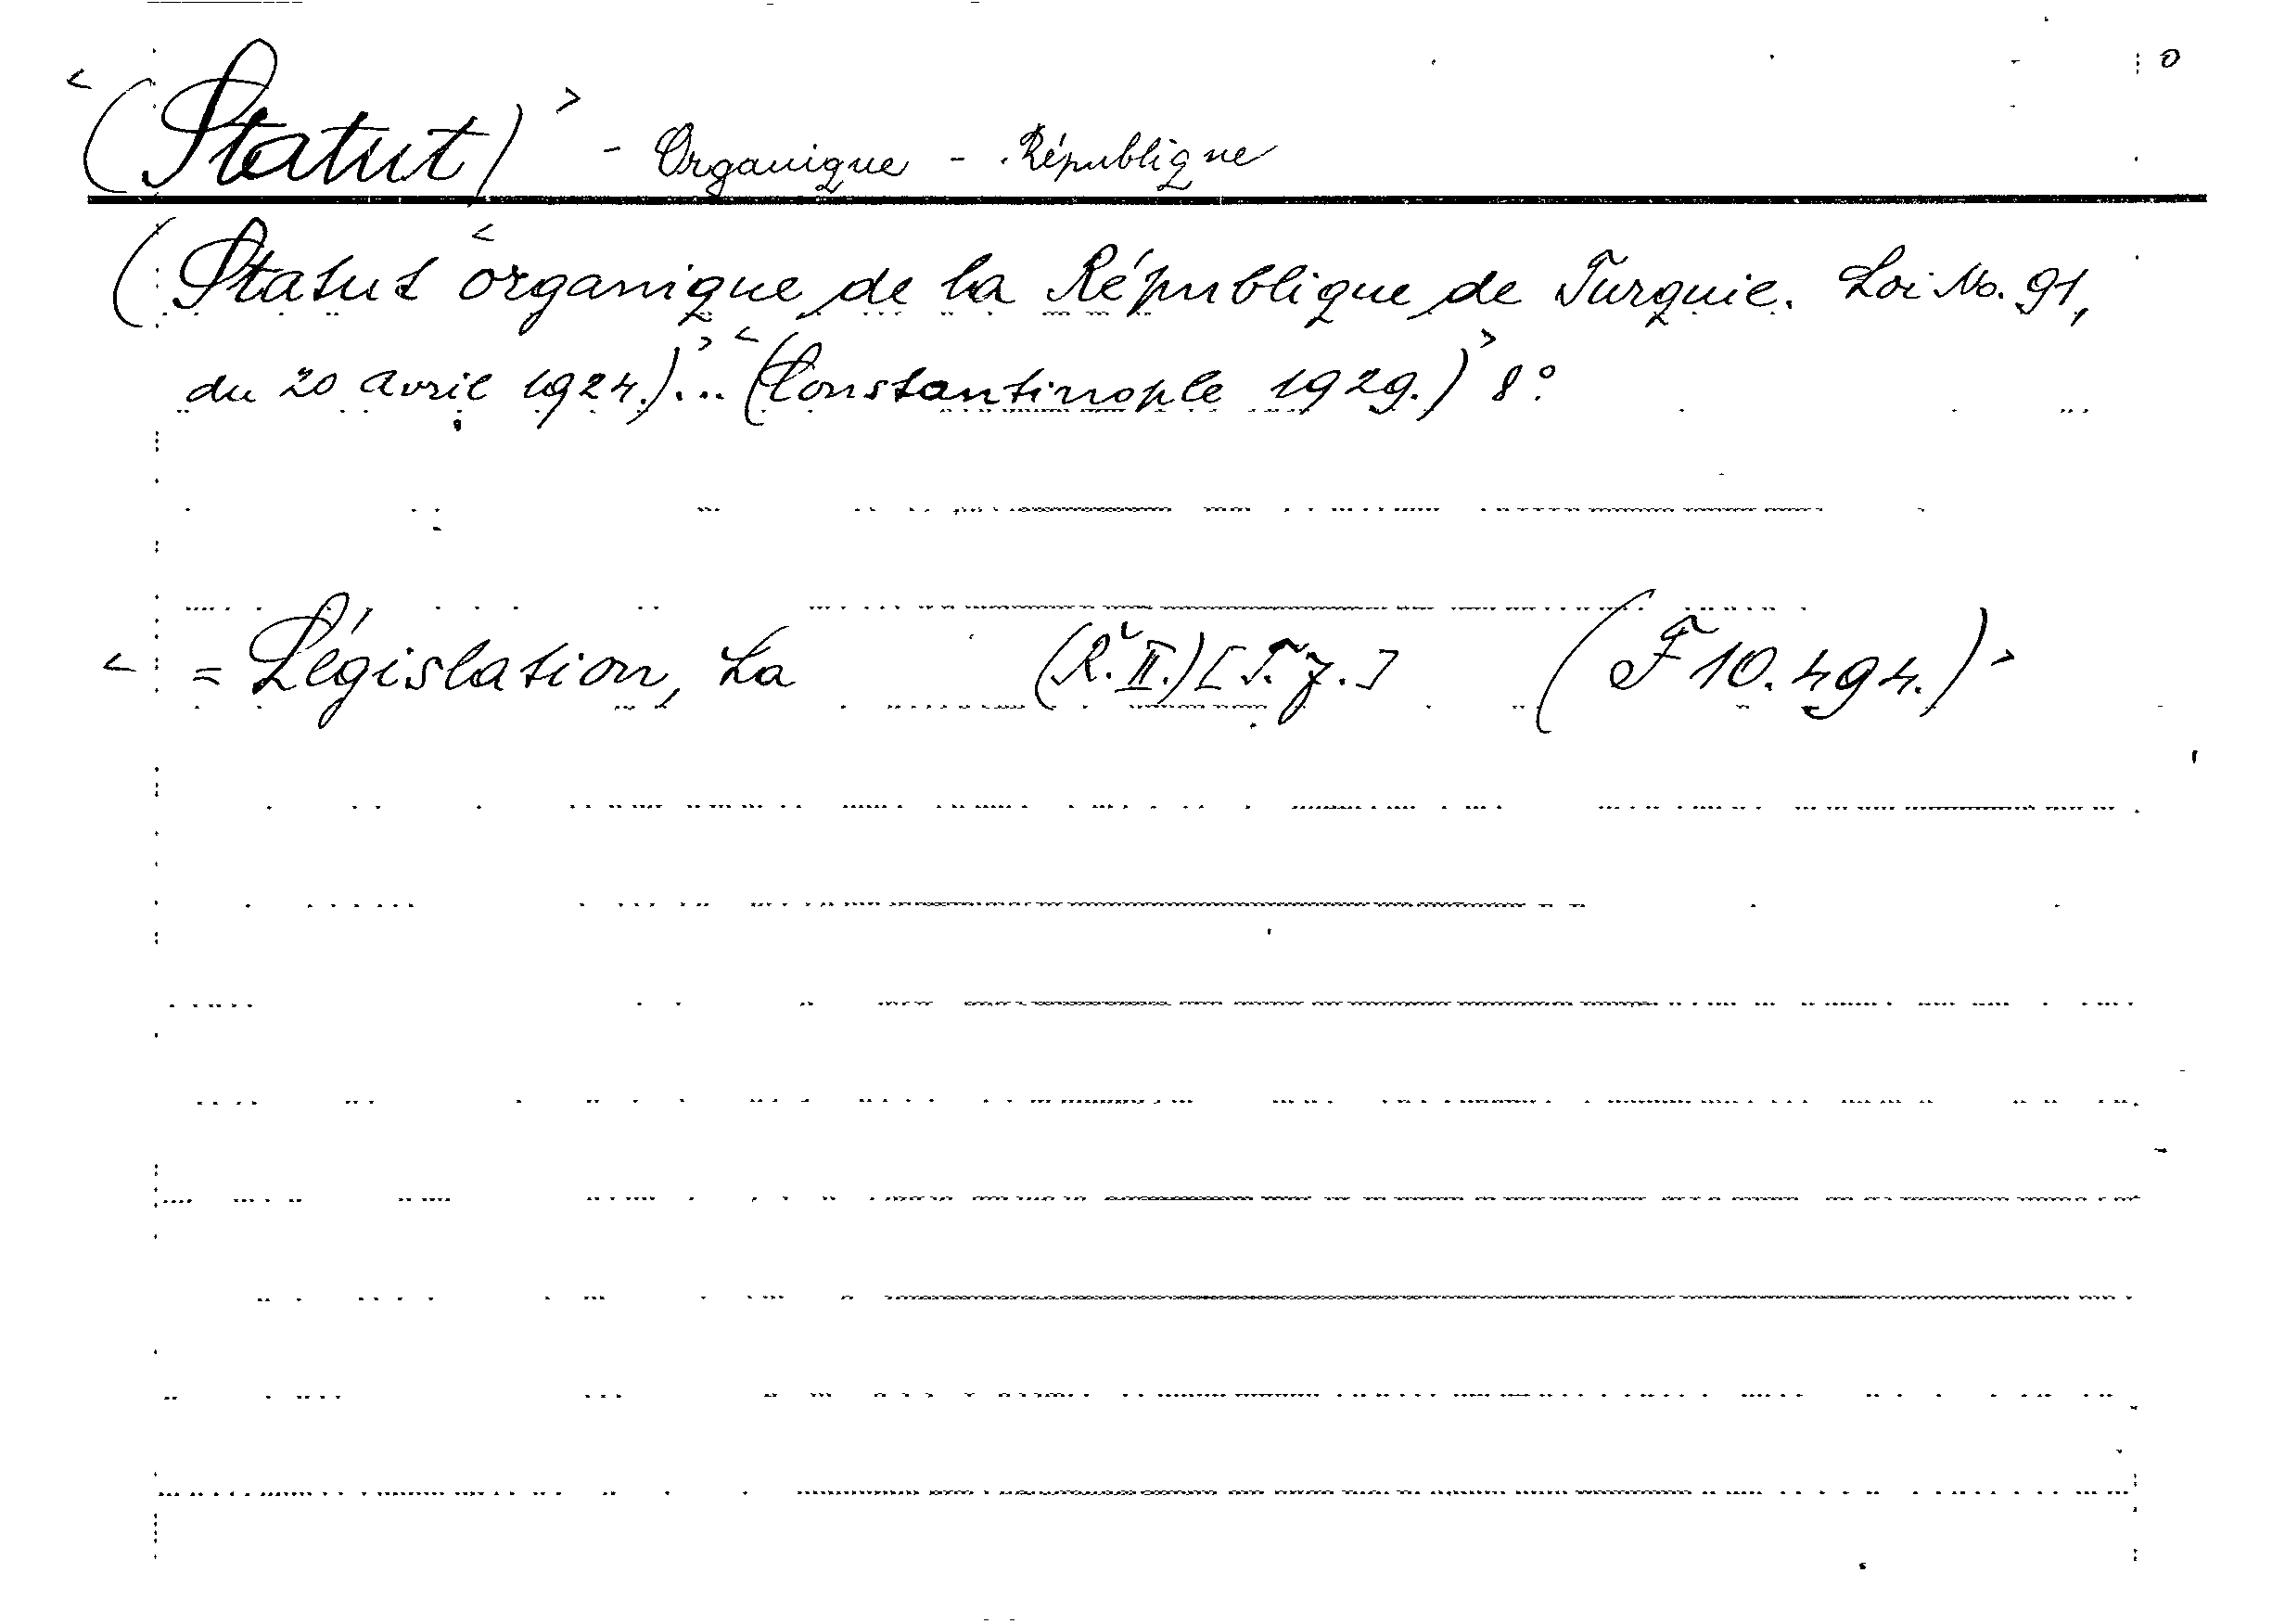 <(Statut)> - Organique - République o
(Statut <organique de la République de Turquie. Loi No. 91,
du 20 avril 1924.)>... <(Constantinople 1929.)> 8°
< = Législation, La (R. II.) [T. J.] (F 10.494.)>